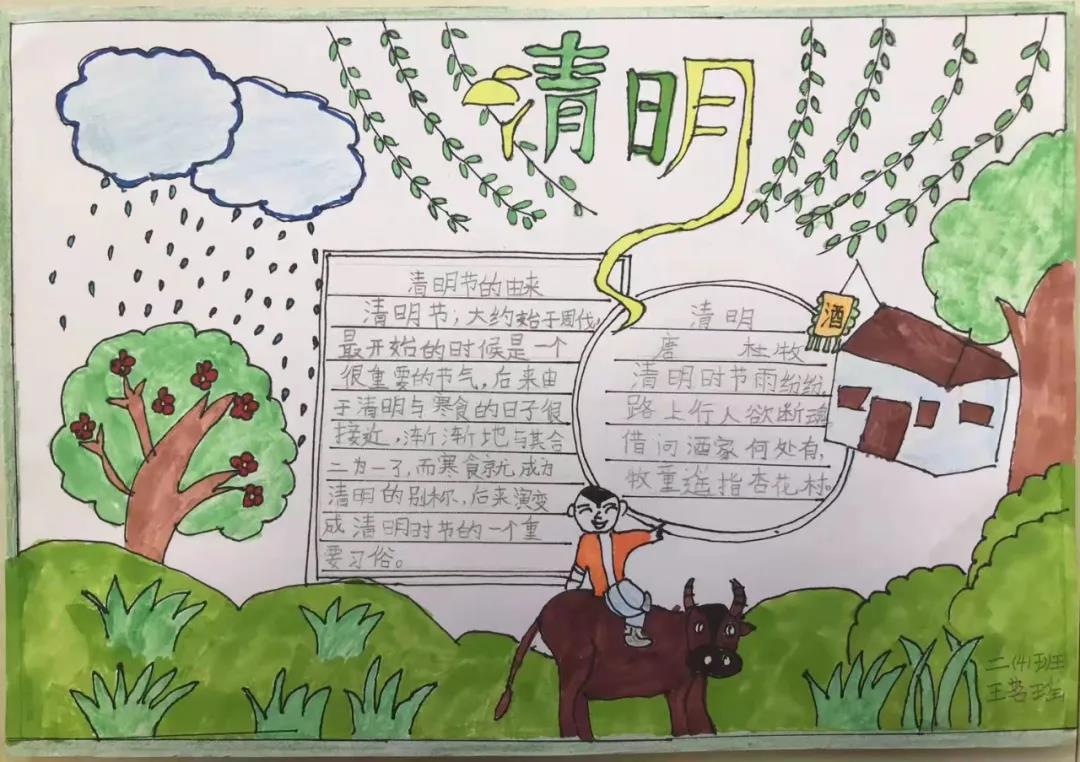 清明
清明节的由来
清明节，大约始于周代，
最开始的时候是一个
很重要的节气，后来由
于清明与寒食的日子很
接近，渐渐地与其合
二为一了，而寒食就成为
清明的别称，后来演变
成清明时节的一个重
要习俗。
清明
唐 杜牧
清明时节雨纷纷，
路上行人欲断魂
借问酒家何处有，
牧童遥指杏花村。
酒
二(4)班
王茗